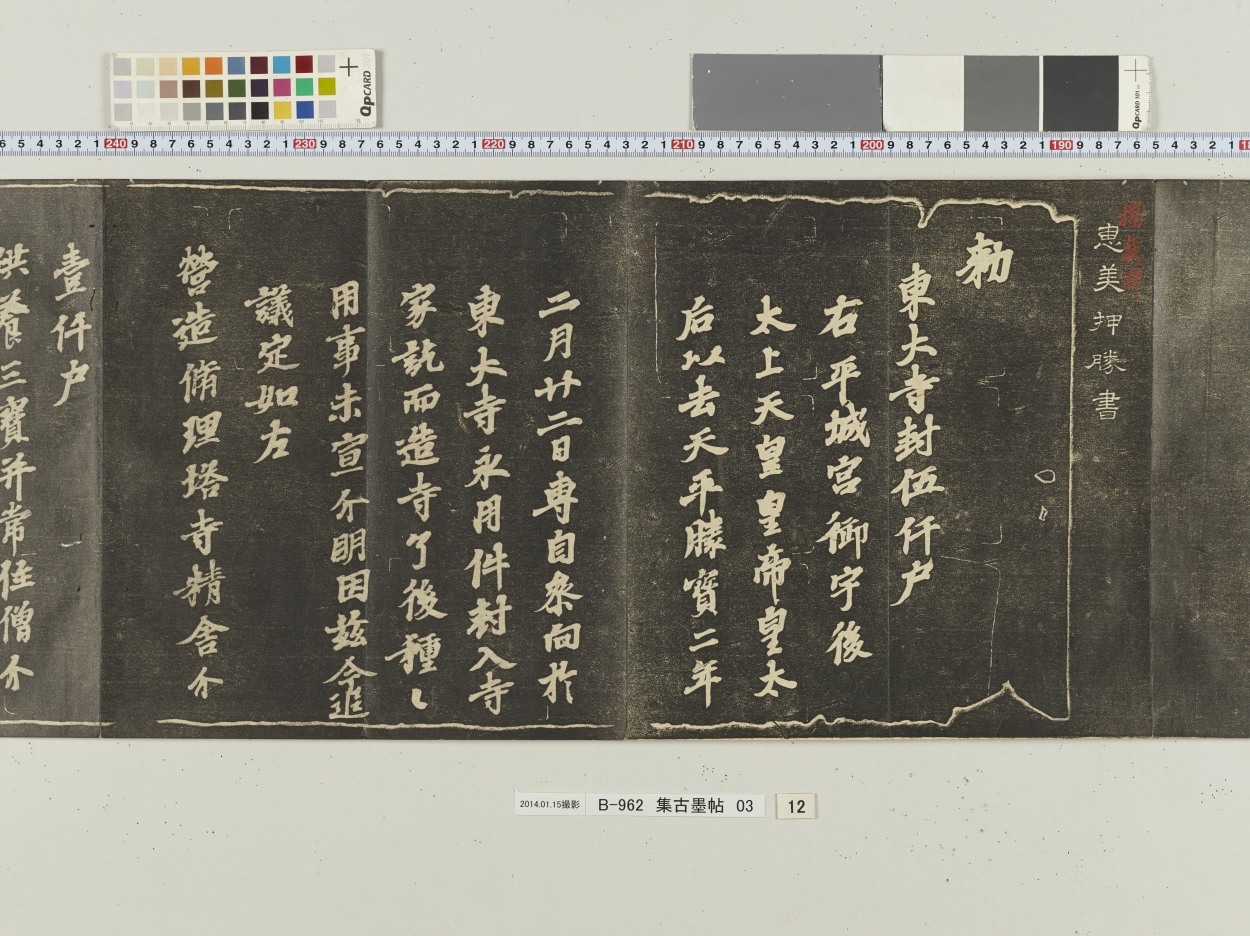 QpCARD
QpCARD 101
6 5 4 3 2 1 240 9 8 7 6 5 4 3 2 1 230 9 8 7 6 5 4 3 2 1 220 9 8 7 6 5 4 3 2 1 210 9 8 7 6 5 4 3 2 1 200 9 8 7 6 5 4 3 2 1 190 9 8 7 6 5 4 3 2 1
恵美押勝書
勅
東大寺封伍仟户
右平城宮御宇後
太上天皇皇帝皇太
后以去天平勝寶二年
二月廿二日専自参向於
東大寺永用件封入寺
家訖而造寺了後種〻
用事未宣分明因茲今追
議定如左
營造脩理塔寺精舍分
壹仟户
供養三寶并常住僧分
2014.01.15撮影 B-962 集古墨帖 03 12